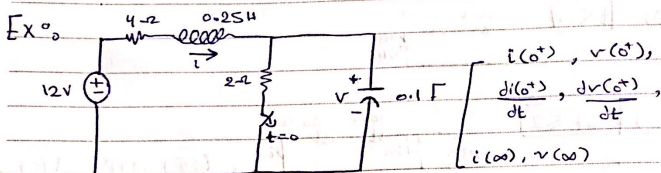 Ex:
4Ω 0.25H
i
12V
2Ω
t=0
+ v -
0.1 F
i(0⁺), v(0⁺),
di(0⁺)/dt, dv(0⁺)/dt,
i(∞), v(∞)